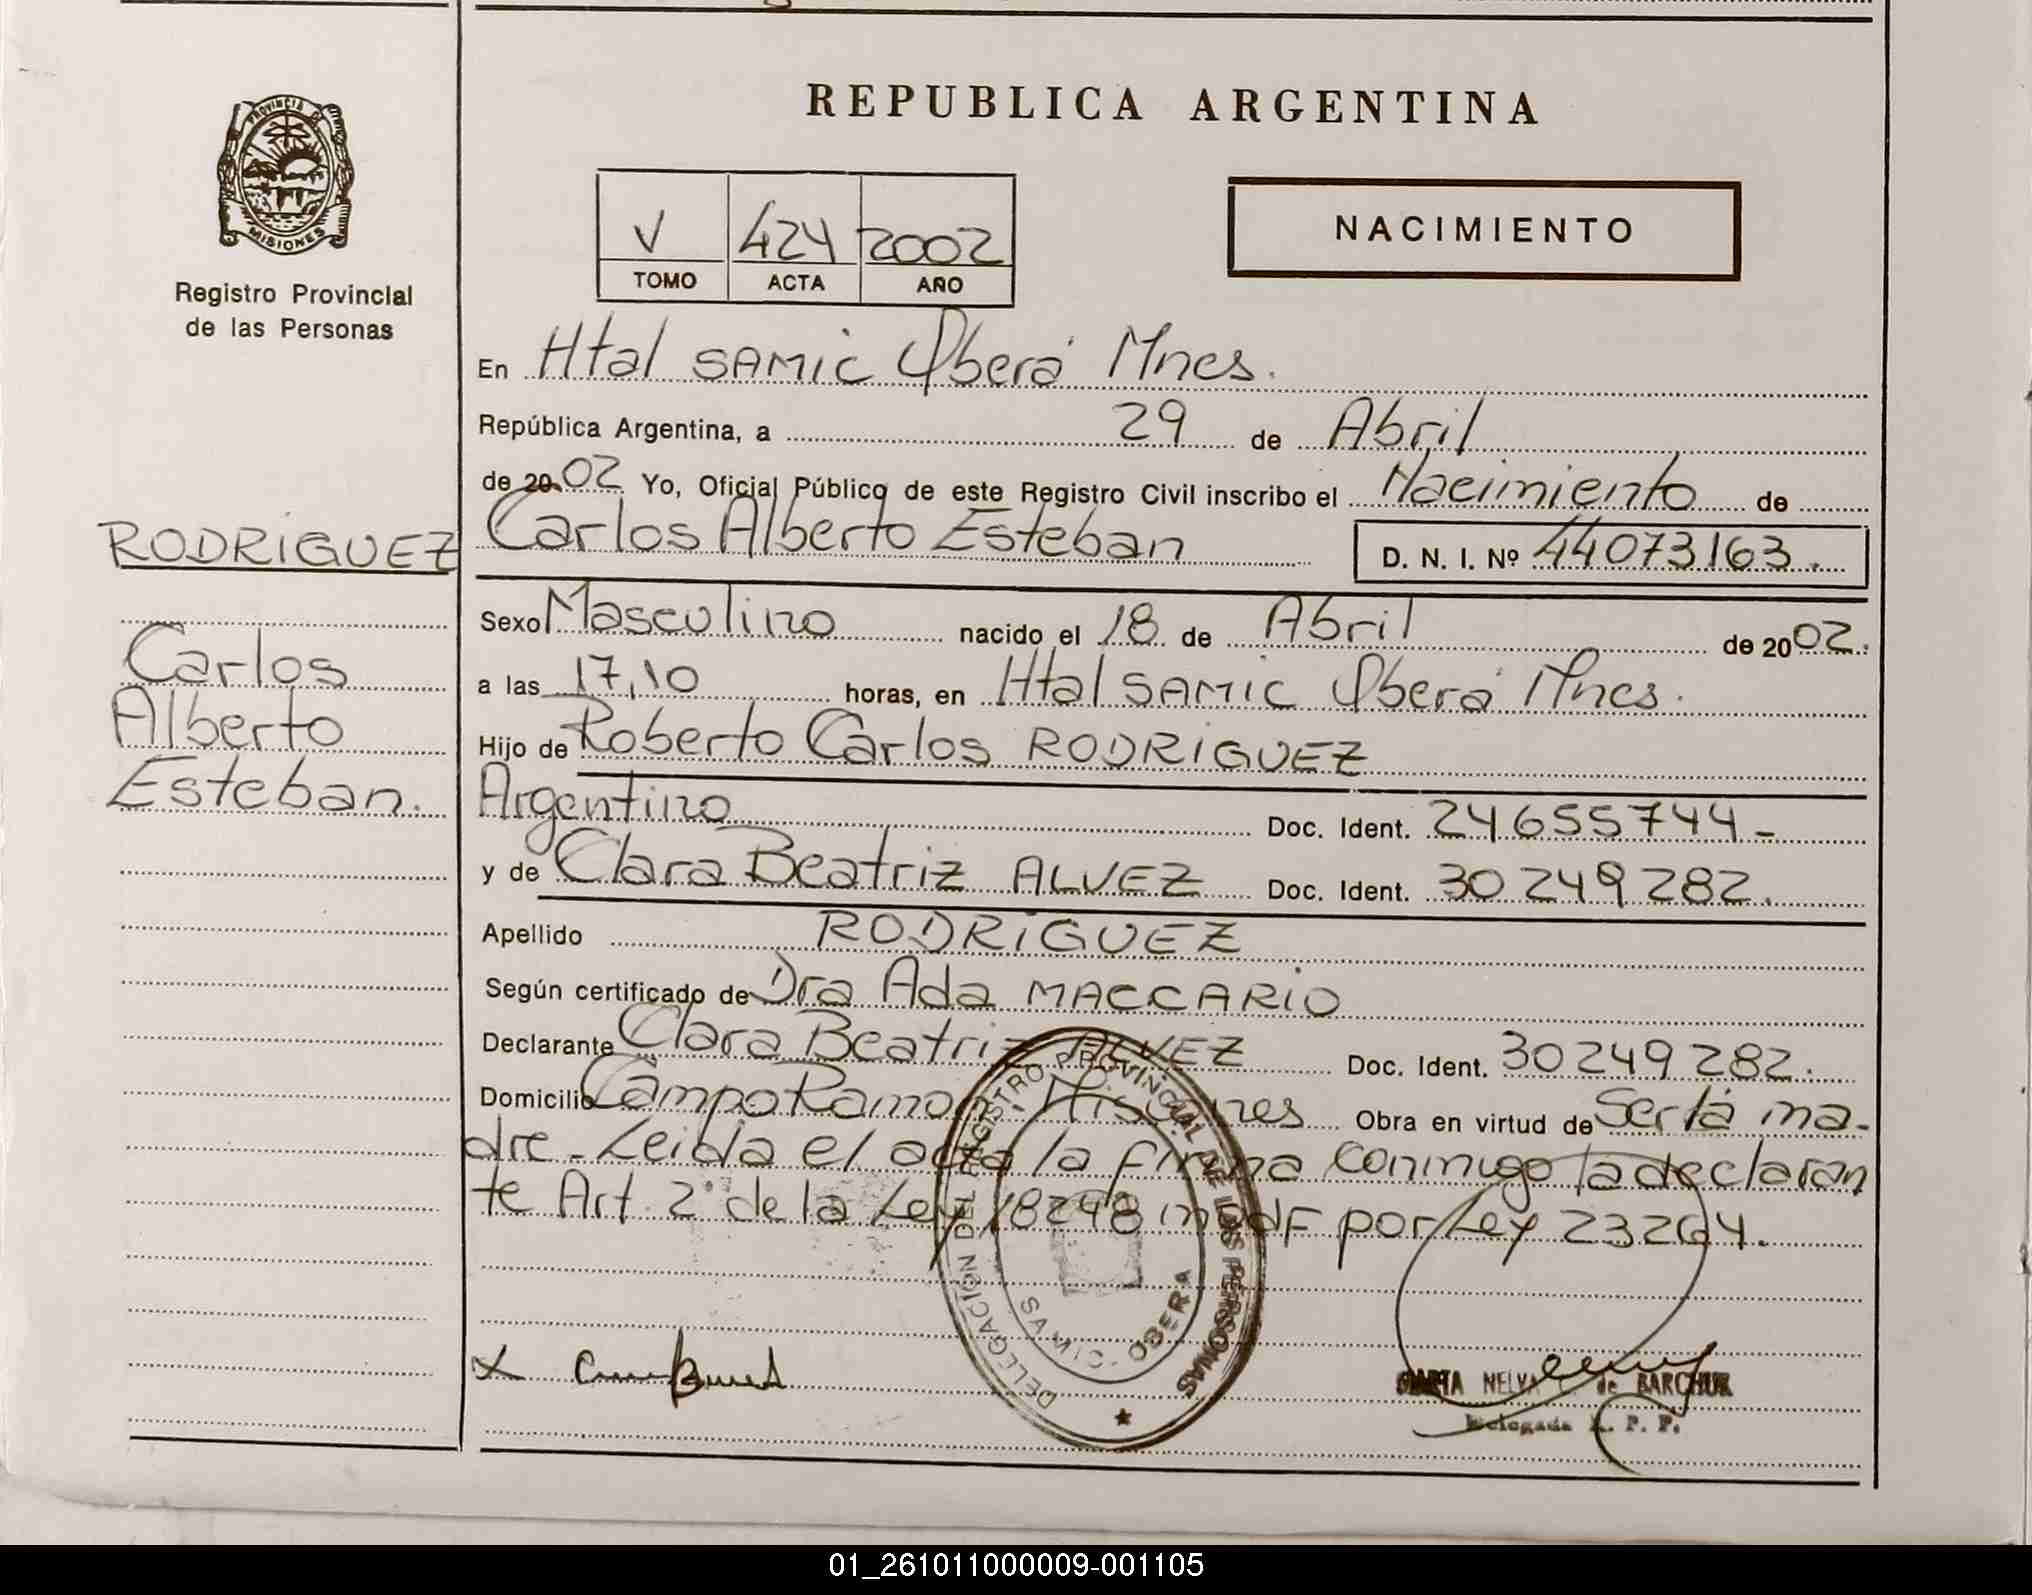 REPUBLICA ARGENTINA
PROVINCIA DE
MISIONES
Registro Provincial
de las Personas
V 424 2002
TOMO ACTA AÑO
NACIMIENTO
En Htal SAMIC Oberá Mnes.
República Argentina, a 29 de Abril
de 2002 Yo, Oficial Público de este Registro Civil inscribo el Nacimiento de
RODRIGUEZ
Carlos
Alberto
Esteban.
Carlos Alberto Esteban D. N. I. Nº 44073163.
Sexo Masculino nacido el 18 de Abril de 2002.
a las 17,10 horas, en Htal SAMIC Oberá Mnes.
Hijo de Roberto Carlos RODRIGUEZ
Argentino Doc. Ident. 24655744-
y de Clara Beatriz ALVEZ Doc. Ident. 30249282.
Apellido RODRIGUEZ
Según certificado de Dra Ada MACCARIO
Declarante Clara Beatriz ALVEZ Doc. Ident. 30249282.
Domicilio Campo Ramon Misiones Obra en virtud de Ser la ma-
dre. Leida el acta la firma conmigo la declaran
te Art. 2° de la Ley 18248 modf por Ley 23264.
DELEGACION DEL REGISTRO PROVINCIAL DE LAS PERSONAS
SAMIC - OBERA
X
NELVA de BARCHUK
Delegada R. P. P.
01_261011000009-001105